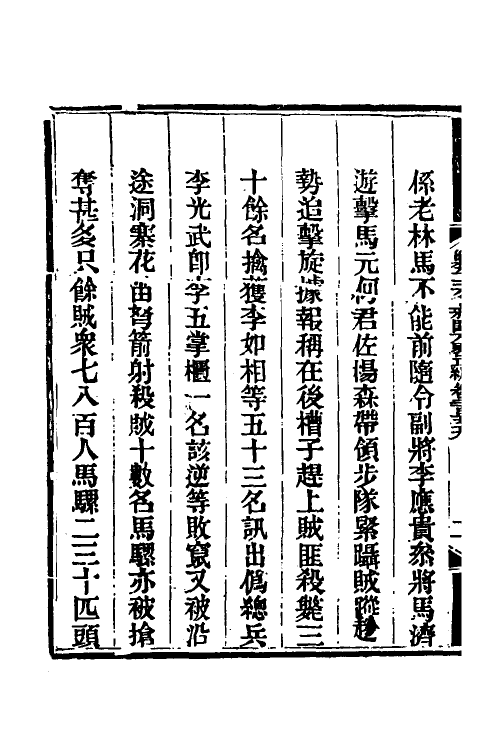 係老林馬不能前隨令副將李應貴叅將馬濟
遊擊馬元何君佐楊森帶領步隊緊躡賊蹤趁
勢追擊旋據報稱在後槽子趕上賊匪殺斃三
十餘名擒獲李如相等五十三名訊出僞總兵
李光武卽李五掌櫃一名該逆等敗竄又被沿
途洞寨花苗弩箭射殺賊十數名馬騾亦被搶
奪甚多只餘賊衆七八百人馬騾二三十匹頭